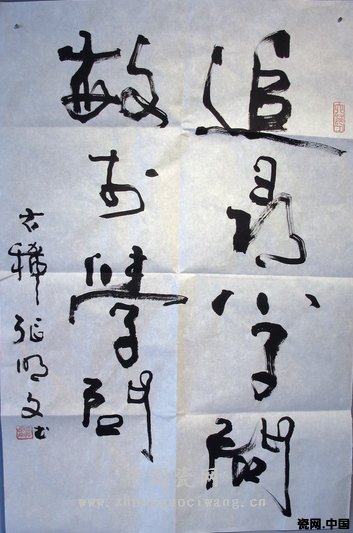 追尋学問
學問
古稀 张明文书
www.zhongguociwang.cn
瓷网.中国